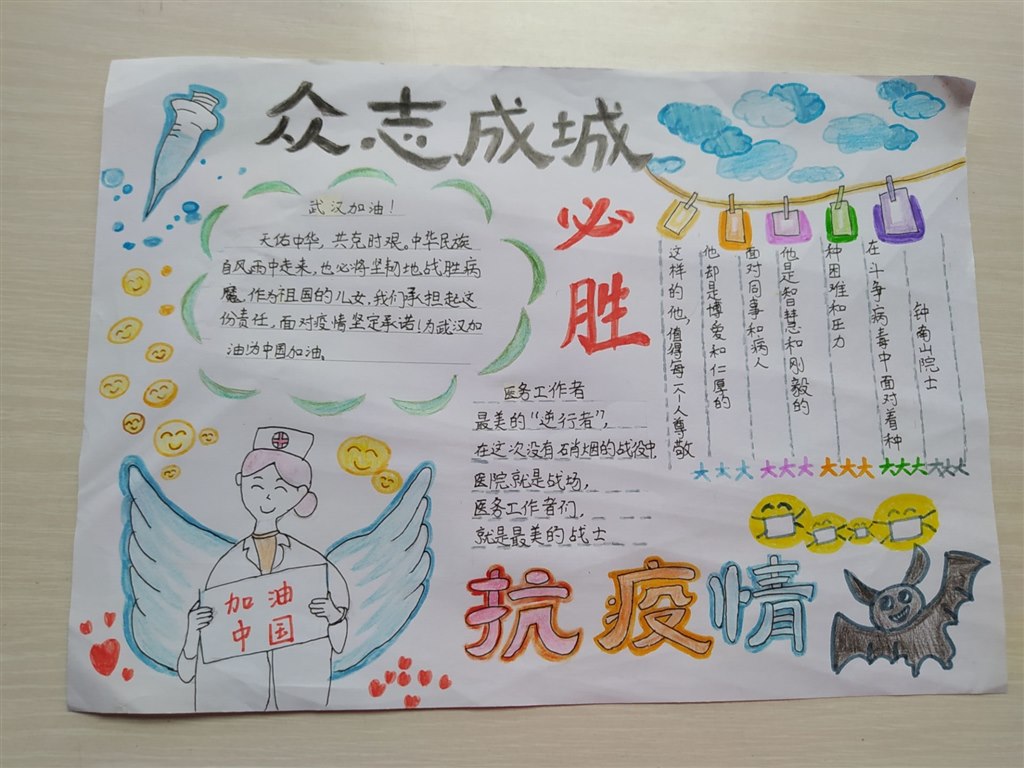 众志成城
必胜
武汉加油！
天佑中华，共克时艰。中华民族
自风雨中走来，也必将坚韧地战胜病
魔。作为祖国的儿女，我们承担起这
份责任，面对疫情坚定承诺！为武汉加
油！为中国加油。
钟南山院士
在斗争病毒中面对着种
种困难和压力
他是知智慧和刚毅的
面对同事和病人
他却是博爱和仁厚的
这样的他，值得每一个人尊敬
医务工作者
最美的“逆行者”，
在这次没有硝烟的战役中
医院就是战场，
医务工作者们，
就是最美的战士
加油
中国
抗疫情